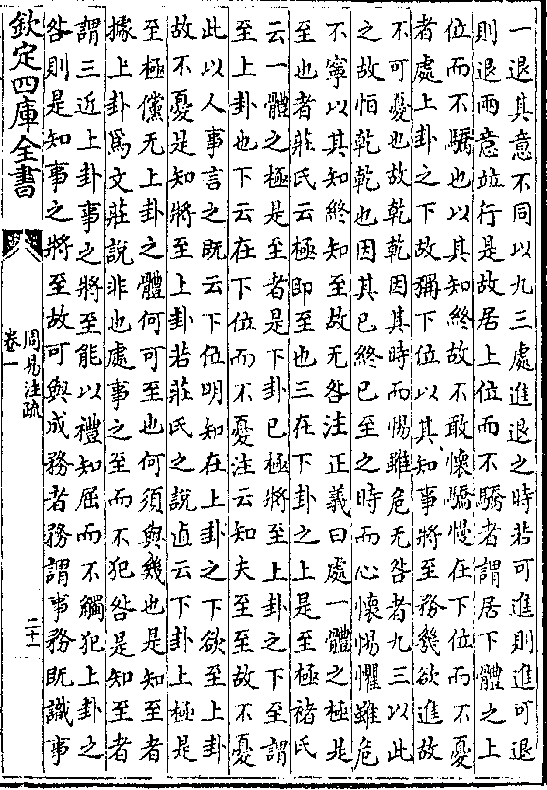 一退其意不同以九三處進退之時若可進則進可退
則退兩意並行是故居上位而不驕者謂居下體之上
位而不驕也以其知終故不敢懷驕慢在下位而不憂
者處上卦之下故稱下位以其知事將至務幾欲進故
不可憂也故乾乾因其時而惕雖危无咎者九三以此
之故恒乾乾也因其已終已至之時而心懷惕懼雖危
不寧以其知終知至故无咎注正義曰處一體之極是
至也者莊氏云極即至也三在下卦之上是至極褚氏
云一體之極是至者是下卦已極將至上卦之下至謂
至上卦也下云在下位而不憂注云知夫至至故不憂
此以人事言之既云下位明知在上卦之下欲至上卦
故不憂是知將至上卦若莊氏之說直云下卦上極是
至極儻无上卦之體何可至也何須與幾也是知至者
據上卦爲文莊說非也處事之至而不犯咎是知至者
謂三近上卦事之將至能以禮知屈而不觸犯上卦之
咎則是知事之將至故可與成務者務謂事務既識事
欽定四庫全書
周易注疏
卷一
二十一